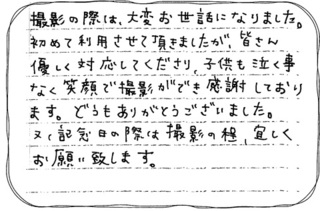 撮影の際は、大変お世話になりました。
初めて利用させて頂きましたが、皆さん
優しく対応してくださり、子供も泣く事
なく笑顔で撮影ができ感謝しており
ます。どうもありがとうございました。
又、記念日の際は撮影の程、宜しく
お願い致します。